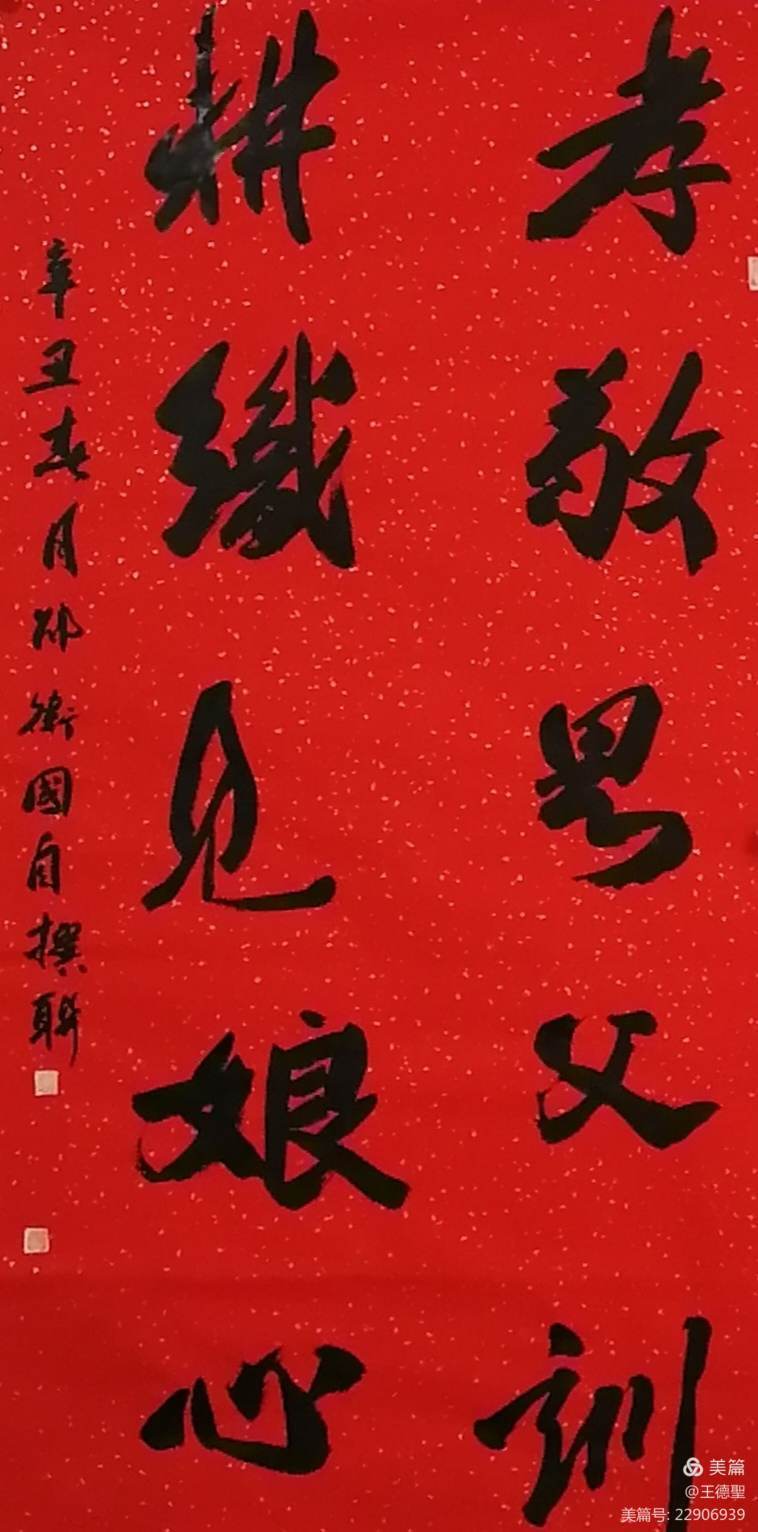 孝敬思父訓
耕織見娘心
辛丑春月邱衛國自撰聯
美篇
@王德聖
美篇号: 22906939